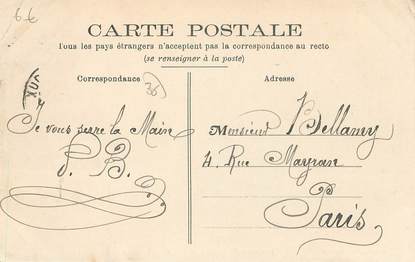 6€
CARTE POSTALE
Tous les pays étrangers n'acceptent pas la correspondance au recto
(se renseigner à la poste)
Correspondance
Adresse
36
Je vous serre la Main
P. B.
Monsieur Bellamy
4. Rue Mayran
Paris